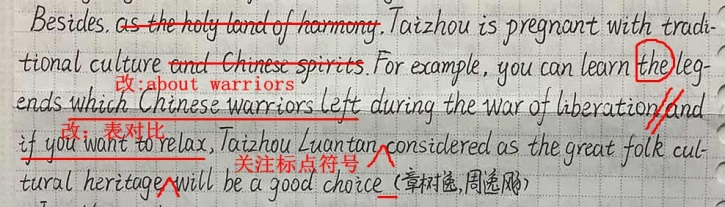 Besides, as the holy land of harmony, Taizhou is pregnant with tradi-
tional culture and Chinese spirits. For example, you can learn the leg-
改:about warriors
ends which Chinese warriors left during the war of liberation and
改：表对比
if you want to relax, Taizhou Luantan considered as the great folk cul-
关注标点符号
tural heritage will be a good choice (章树逸,周逸飏)